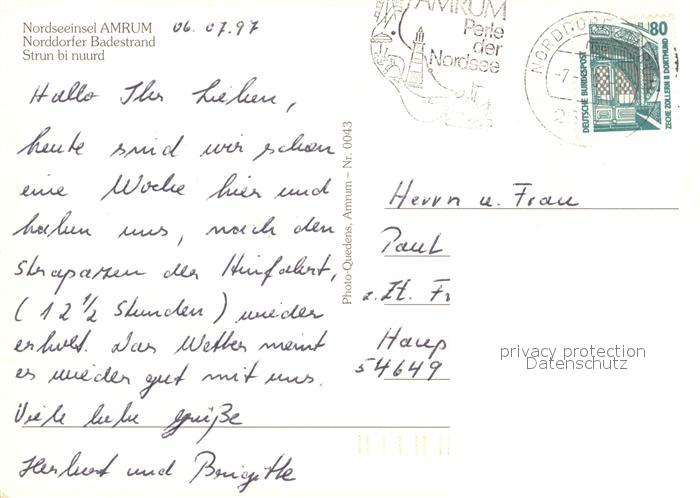 Nordseeinsel AMRUM
Norddorfer Badestrand
Strun bi nuurd
06.07.97
Hallo Ihr Lieben,
heute sind wir schon
eine Woche hier und
haben uns, nach den
Strapazen der Hinfahrt,
(12 1/2 Stunden) wieder
erholt. Das Wetter meint
es wieder gut mit uns.
Viele liebe Grüße
Herbert und Brigitte
Photo-Quedens, Amrum – Nr. 0043
AMRUM
Perle
der
Nordsee
NORDDOR
80
DEUTSCHE BUNDESPOST
ZECHE ZOLLERN II DORTMUND
Herrn u. Frau
Paul
z. Zt. Fr
Haup
54649
privacy protection
Datenschutz